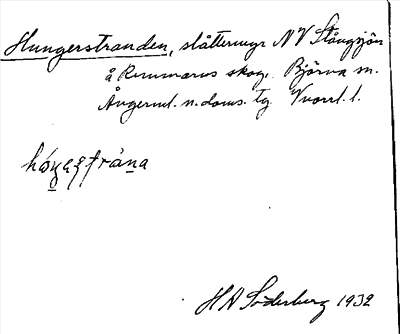 Hungerstranden, slåttermyr NV Stångsjön
å Remmarns skog. Björna sn.
Ångerml. n. doms. tg. Vnorrl. l.
H A Söderberg 1932